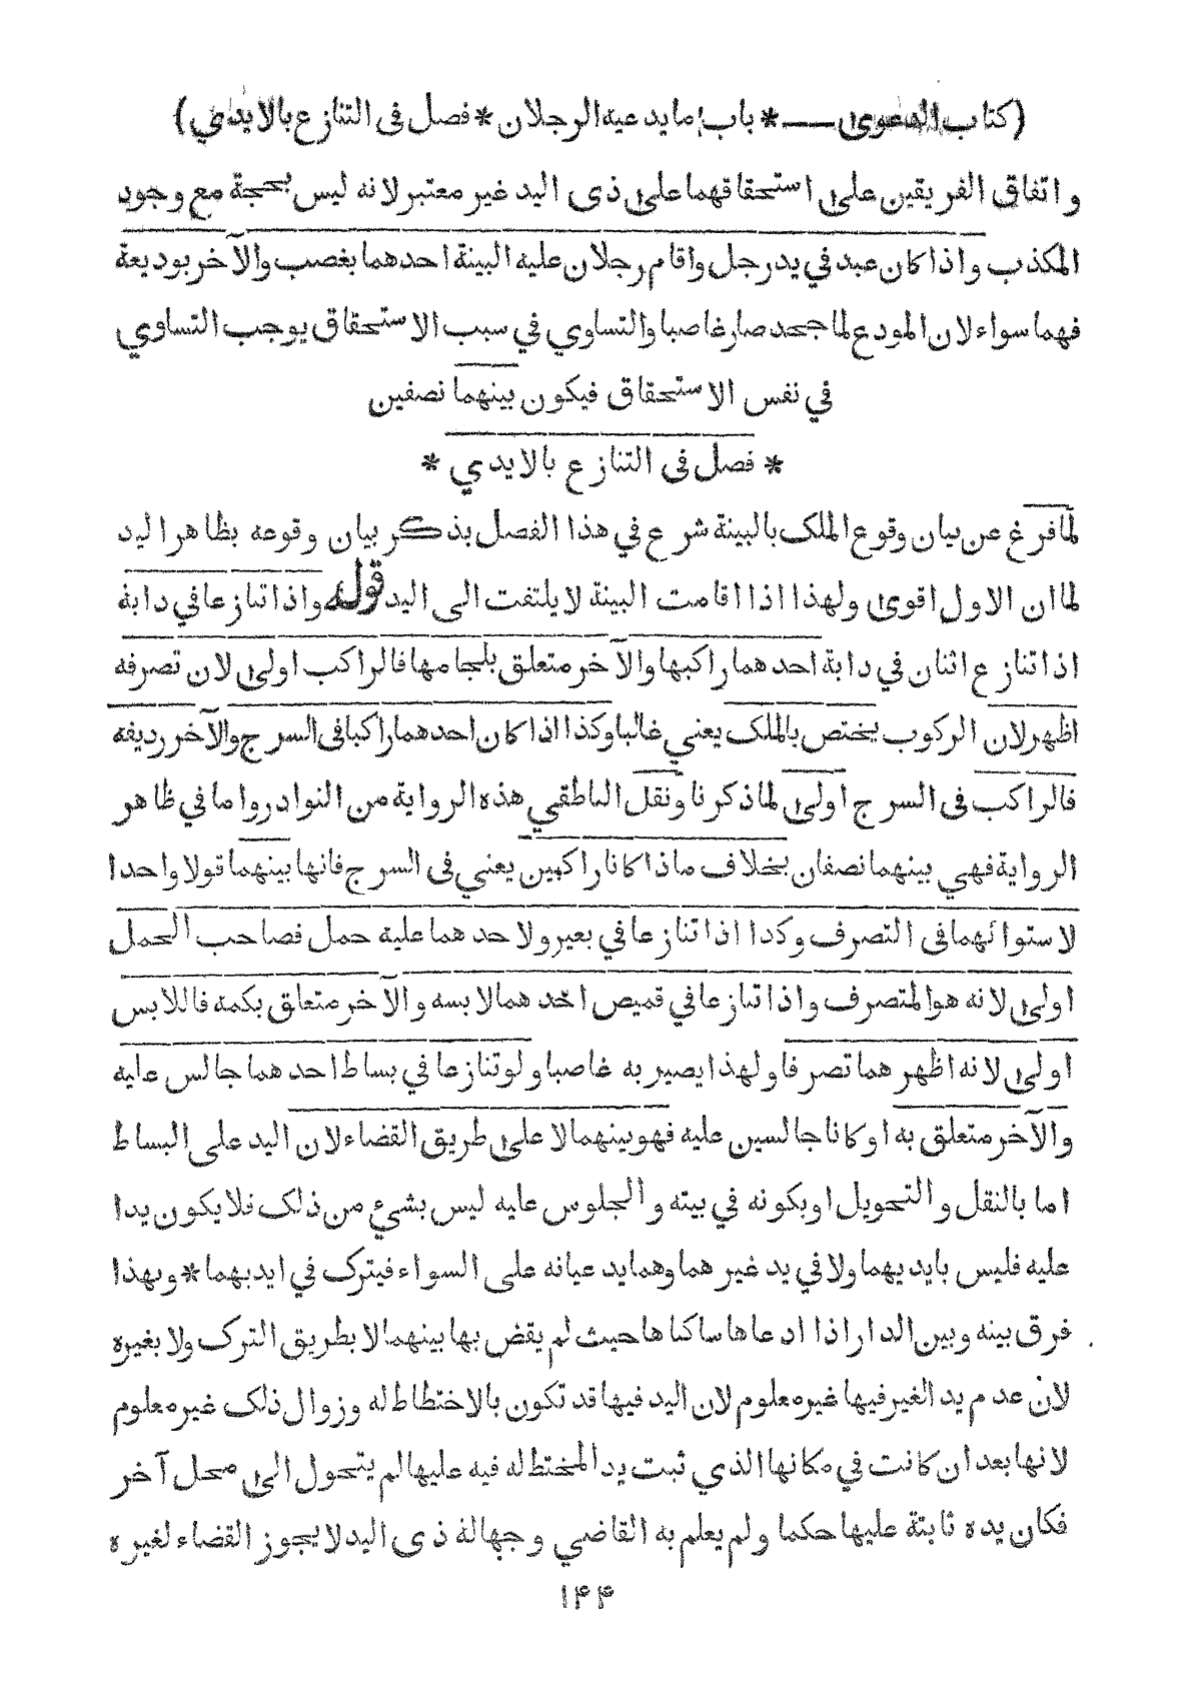 (كتاب الدعوى — * باب ما يدعيه الرجلان * فصل فى التنازع بالايدي)
واتفاق الفريقين على استحقاقهما على ذى اليد غير معتبر لانه ليس بحجة مع وجود
المكذب واذا كان عبد في يد رجل واقام رجلان عليه البينة احدهما بغصب والآخر بوديعة
فهما سواء لان المودع لما جحد صار غاصبا والتساوي في سبب الاستحقاق يوجب التساوي
في نفس الاستحقاق فيكون بينهما نصفين
* فصل فى التنازع بالايدي *
لما فرغ عن بيان وقوع الملك بالبينة شرع في هذا الفصل بذكر بيان وقوعه بظاهر اليد
لما ان الاول اقوى ولهذا اذا اقامت البينة لا يلتفت الى اليد قوله واذا تنازعا في دابة
اذا تنازع اثنان في دابة احدهما راكبها والآخر متعلق بلجامها فالراكب اولى لان تصرفه
اظهر لان الركوب يختص بالملك يعني غالبا وكذا اذا كان احدهما راكبا فى السرج والآخر رديفه
فالراكب فى السرج اولى لما ذكرنا ونقل الناطقي هذه الرواية من النوادر واما في ظاهر
الرواية فهي بينهما نصفان بخلاف ماذا كانا راكبين يعني فى السرج فانها بينهما قولا واحدا
لاستوائهما فى التصرف وكذا اذا تنازعا في بعير ولاحدهما عليه حمل فصاحب الحمل
اولى لانه هو المتصرف واذا تنازعا في قميص احدهما لابسه والآخر متعلق بكمه فاللابس
اولى لانه اظهرهما تصرفا ولهذا يصير به غاصبا ولو تنازعا في بساط احدهما جالس عليه
والآخر متعلق به او كانا جالسين عليه فهو بينهما لا على طريق القضاء لان اليد على البساط
اما بالنقل والتحويل او بكونه في بيته والجلوس عليه ليس بشيء من ذلك فلا يكون يدا
عليه فليس بايديهما ولا في يد غيرهما وهما يدعيانه على السواء فيترك في ايديهما * وبهذا
فرق بينه وبين الدار اذا ادعاها ساكناها حيث لم يقض بها بينهما لا بطريق الترك ولا بغيره
لان عدم يد الغير فيها غير معلوم لان اليد فيها قد تكون بالاختطاط له وزوال ذلك غير معلوم
لانها بعد ان كانت في مكانها الذي ثبت يد المختط له فيه عليها لم يتحول الى محل آخر
فكان يده ثابتة عليها حكما ولم يعلم به القاضي وجهالة ذى اليد لا يجوز القضاء لغيره
۱۴۴